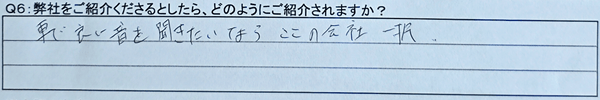 Q6：弊社をご紹介くださるとしたら、どのようにご紹介されますか？
車で良い音を聞きたいなら ここの会社 一択.